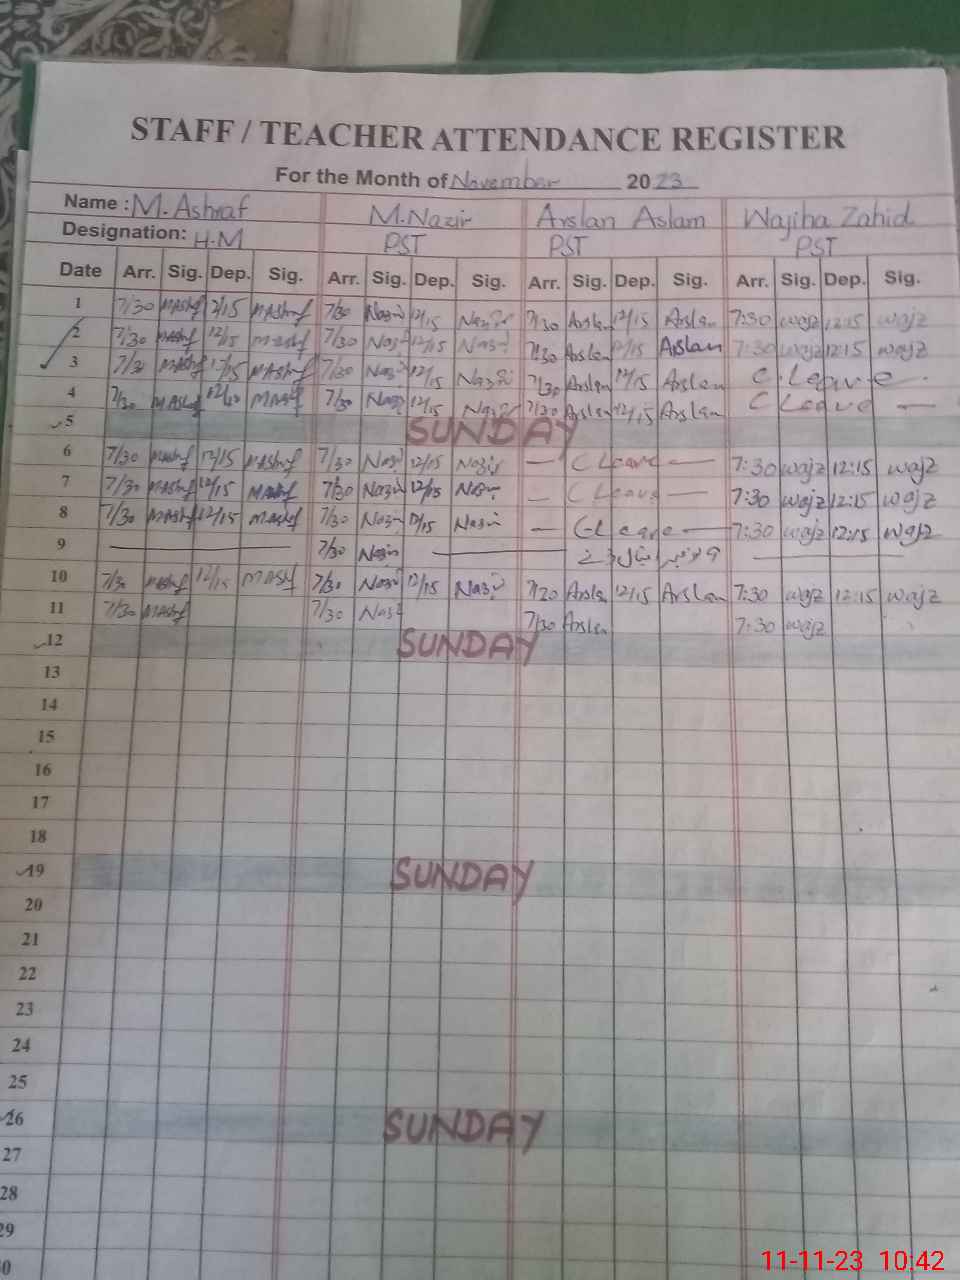 STAFF / TEACHER ATTENDANCE REGISTER
For the Month of November 2023
Name : M. Ashraf M. Nazir Arslan Aslam Wajiha Zahid
Designation: H.M PST PST PST
Date Arr. Sig. Dep. Sig. Arr. Sig. Dep. Sig. Arr. Sig. Dep. Sig. Arr. Sig. Dep. Sig.
1 7/30 MAshf 12/15 MAshraf 7/30 Nazir 12/15 Nazir 7/30 Arslan 12/15 Arslan 7:30 wajz 12:15 wajz
2 7/30 MAshf 12/15 MAshraf 7/30 Nazir 12/15 Nazir 7/30 Arslan 12/15 Arslan 7:30 wajz 12:15 wajz
3 7/30 MAshf 12/15 MAshraf 7/30 Nazir 12/15 Nazir 7/30 Arslan 12/15 Arslan C. Leave
4 7/30 MAshf MAshf 7/30 Nazir 12/15 Nazir 7/30 Arslan 12/15 Arslan C Leave —
5 SUNDAY
6 7/30 MAshf 12/15 MAshraf 7/30 Nazir 12/15 Nazir — C Leave — 7:30 wajz 12:15 wajz
7 7/30 MAshraf 12/15 MAshraf 7/30 Nazir 12/15 Nazir — C Leave — 7:30 wajz 12:15 wajz
8 7/30 MAshraf 12/15 MAshraf 7/30 Nazir 12/15 Nazir — C Leave — 7:30 wajz 12:15 wajz
9 — 7/30 Nazir —
10 7/30 MAshf 12/15 MAshf 7/30 Nazir 12/15 Nazir 7/30 Arslan 12/15 Arslan 7:30 wajz 12:15 wajz
11 7/30 MAshraf 7/30 Nazir 7/30 Arslan 7:30 wajz
12 SUNDAY
13
14
15
16
17
18
19 SUNDAY
20
21
22
23
24
25
26 SUNDAY
27
28
29
11-11-23 10:42